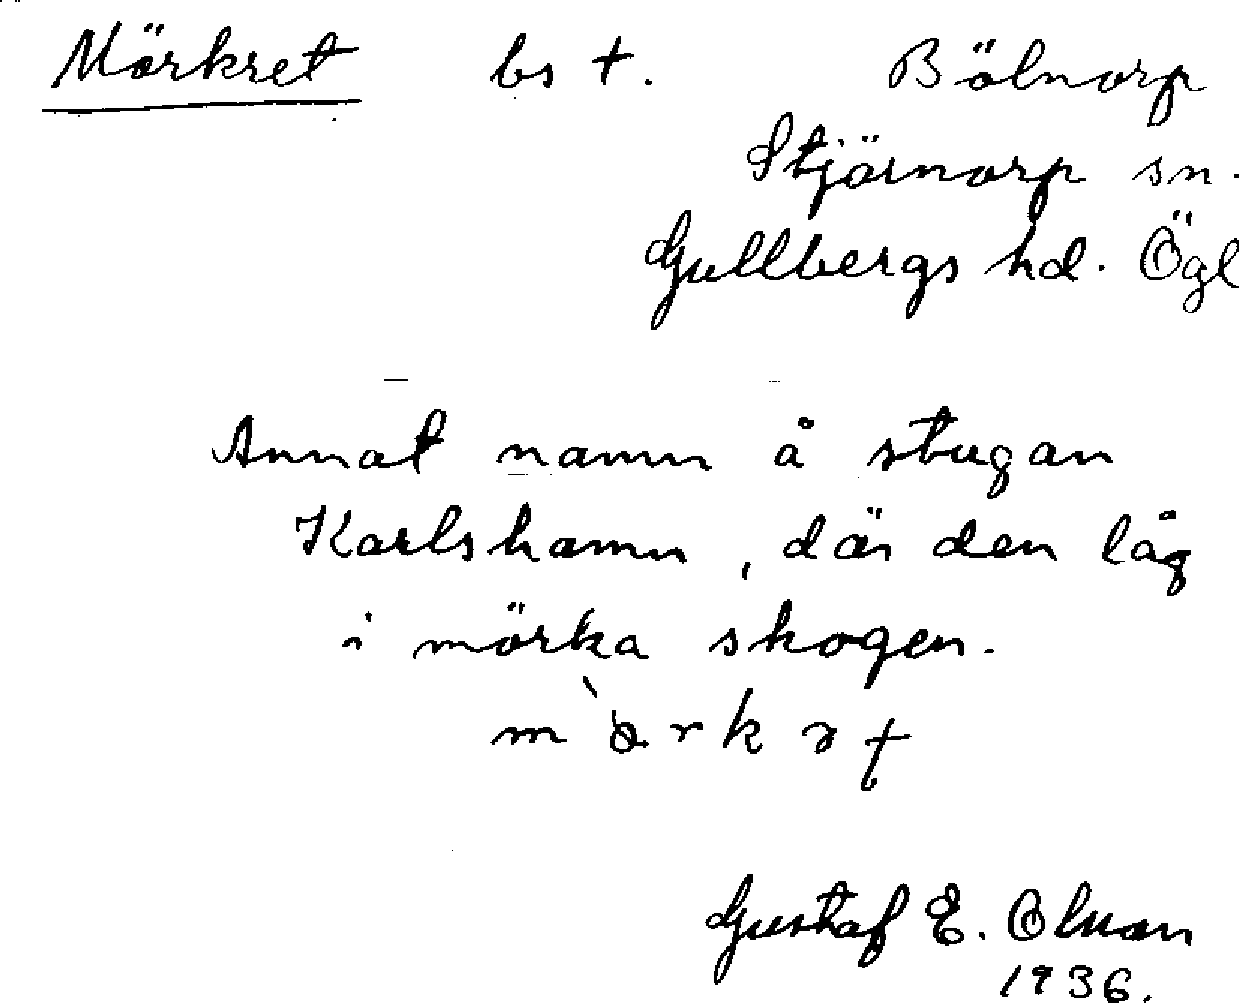 Mörkret bs †. Bölnorp
Stjärnorp sn.
Gullbergs hd. Ögl
Annat namn å stugan
Karlshamn, där den låg
i mörka skogen.
Gustaf E. Olsson
1936.